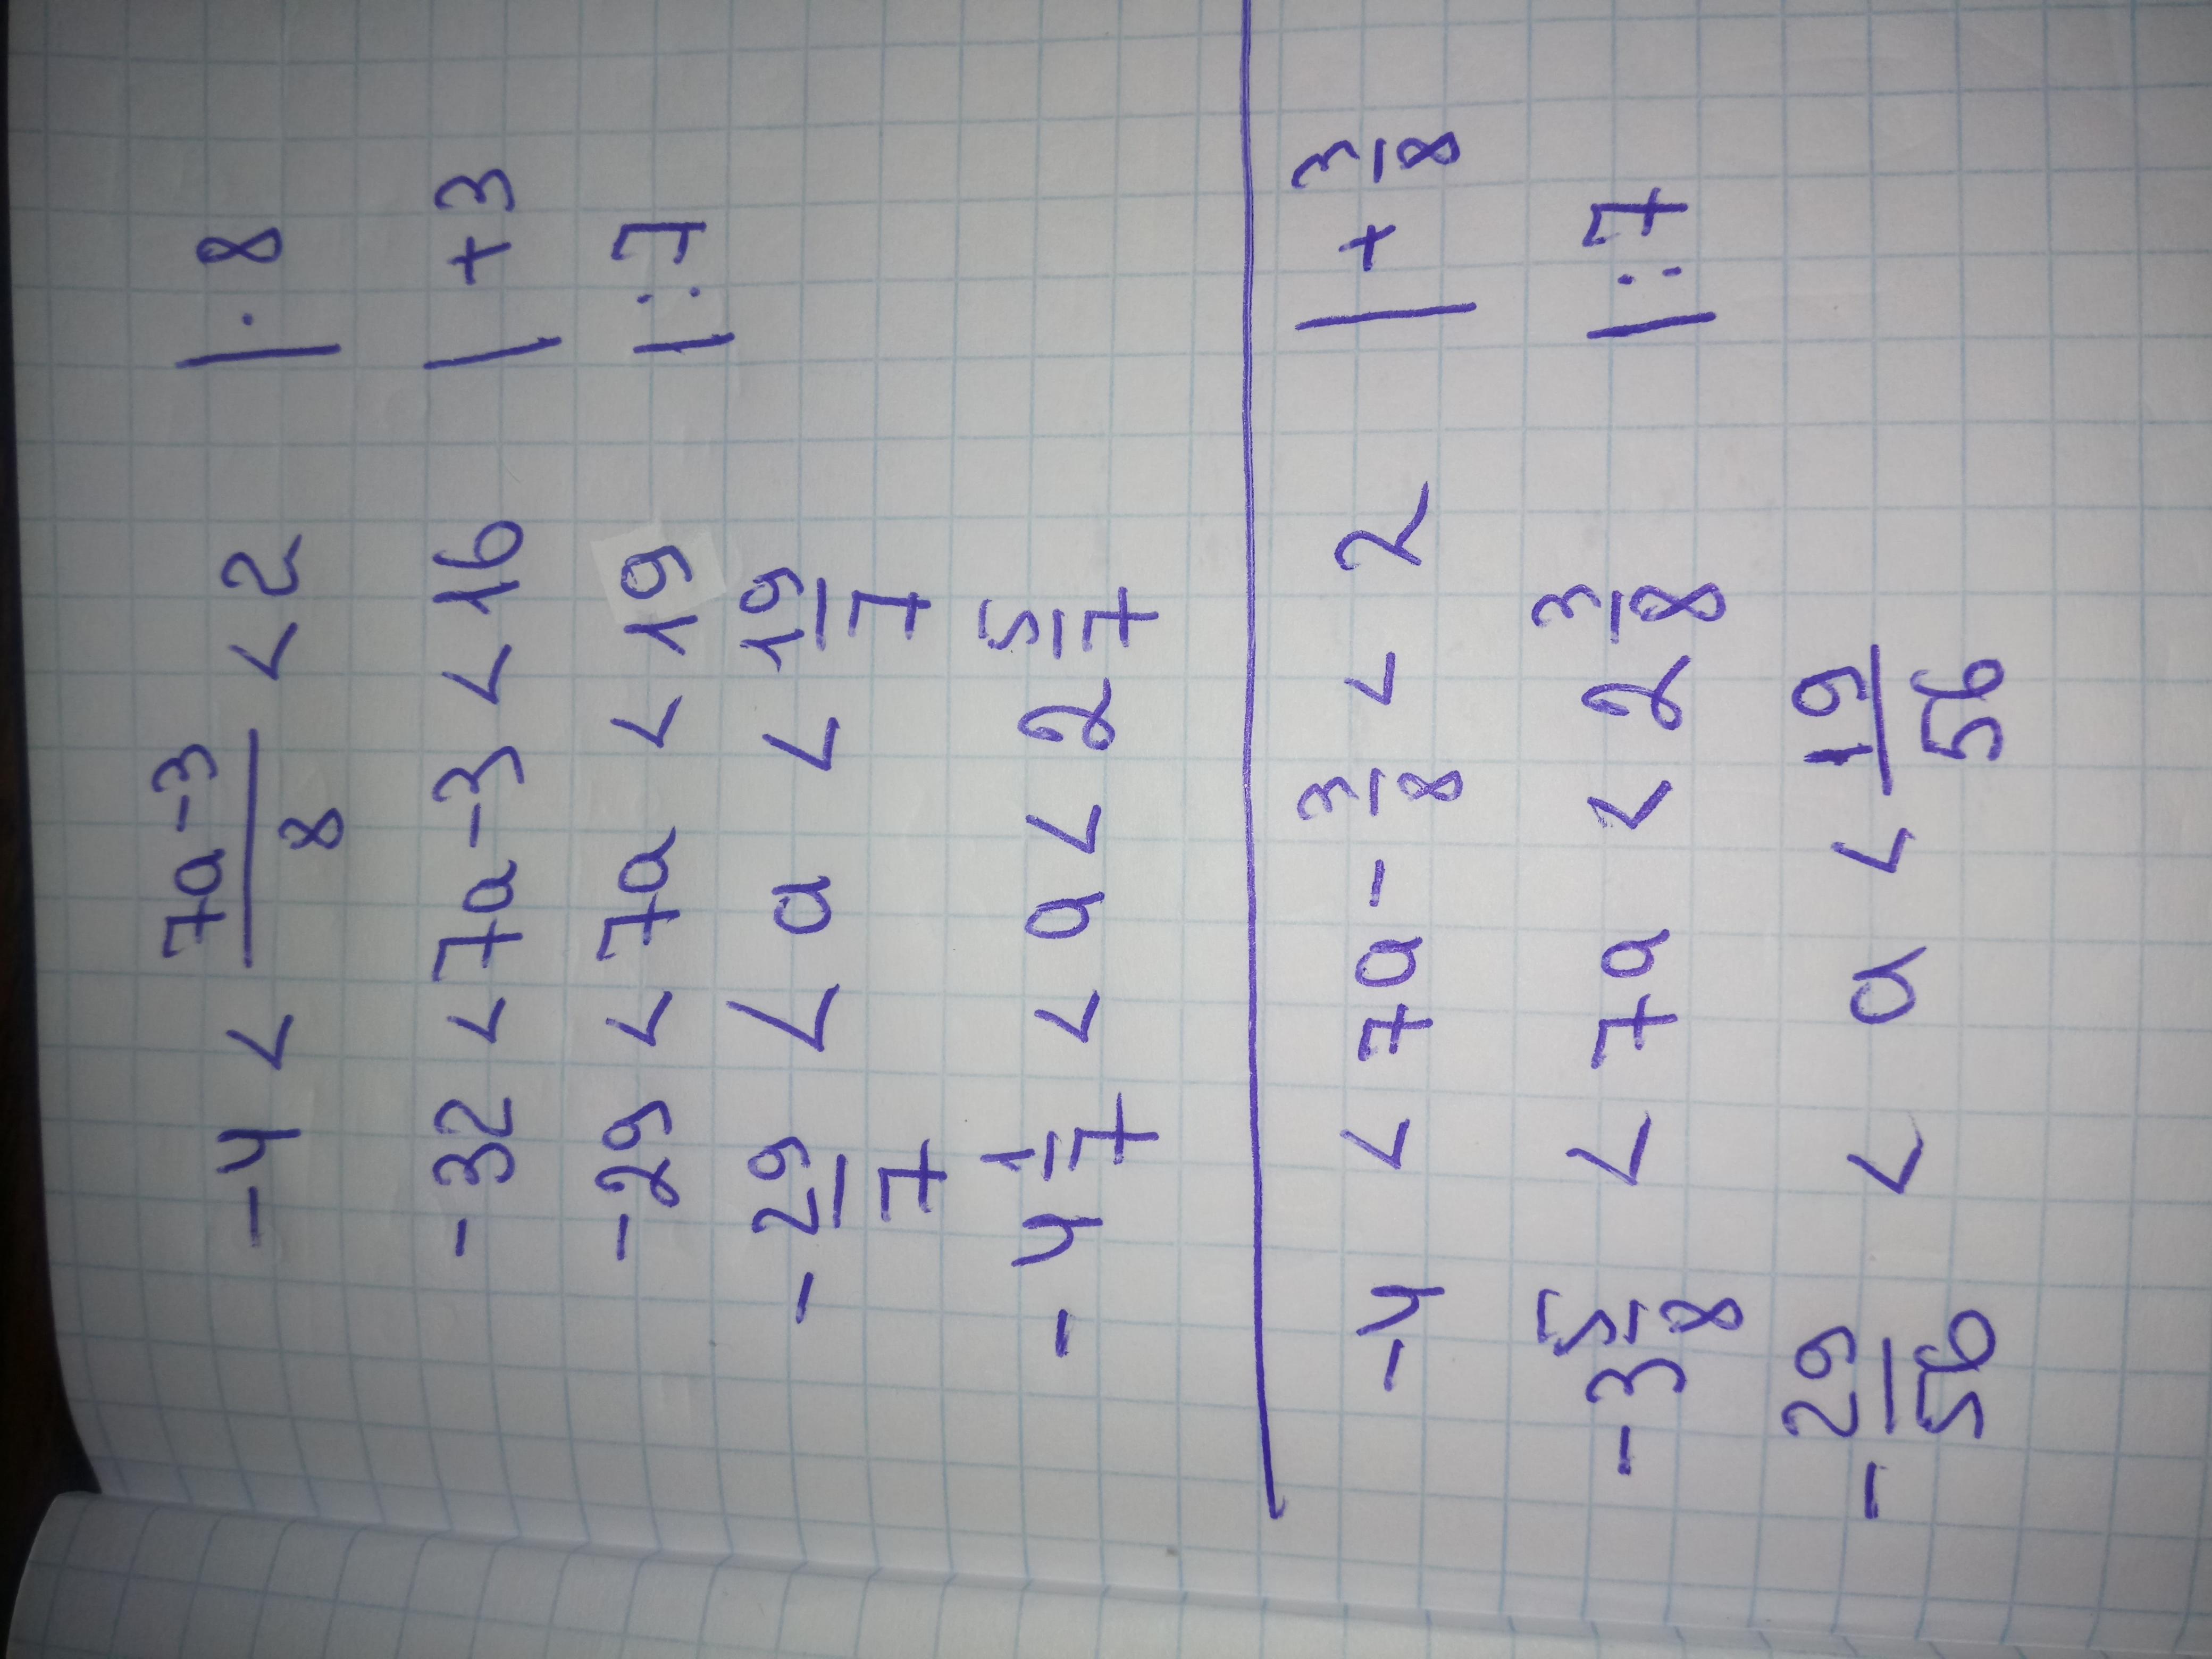 -4 < \frac{7a-3}{8} < 2 | · 8
-32 < 7a-3 < 16 | +3
-29 < 7a < 19 | :7
-\frac{29}{7} < a < \frac{19}{7}
-4\frac{1}{7} < a < 2\frac{5}{7}
-4 < 7a - \frac{3}{8} < 2 | + \frac{3}{8}
-3\frac{5}{8} < 7a < 2\frac{3}{8} | :7
-\frac{29}{56} < a < \frac{19}{56}